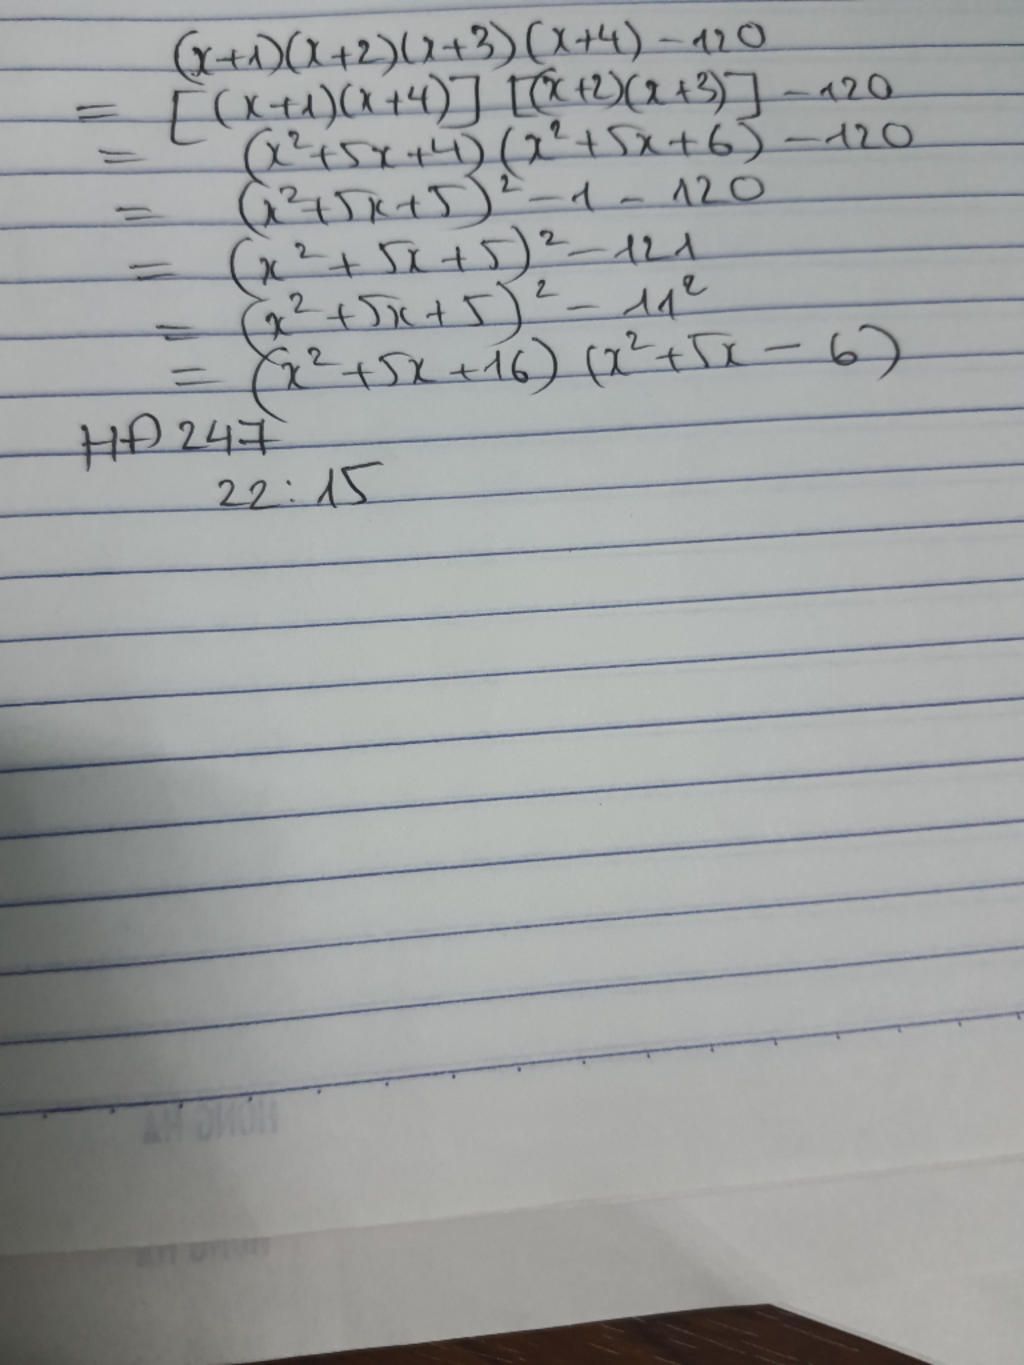 (x+1)(x+2)(x+3)(x+4) - 120
= [(x+1)(x+4)] [(x+2)(x+3)] - 120
= (x²+5x+4)(x²+5x+6) - 120
= (x²+5x+5)² - 1 - 120
= (x²+5x+5)² - 121
= (x²+5x+5)² - 11²
= (x²+5x+16) (x²+5x - 6)
HĐ 247
22:15
HONG HA
HONG HA